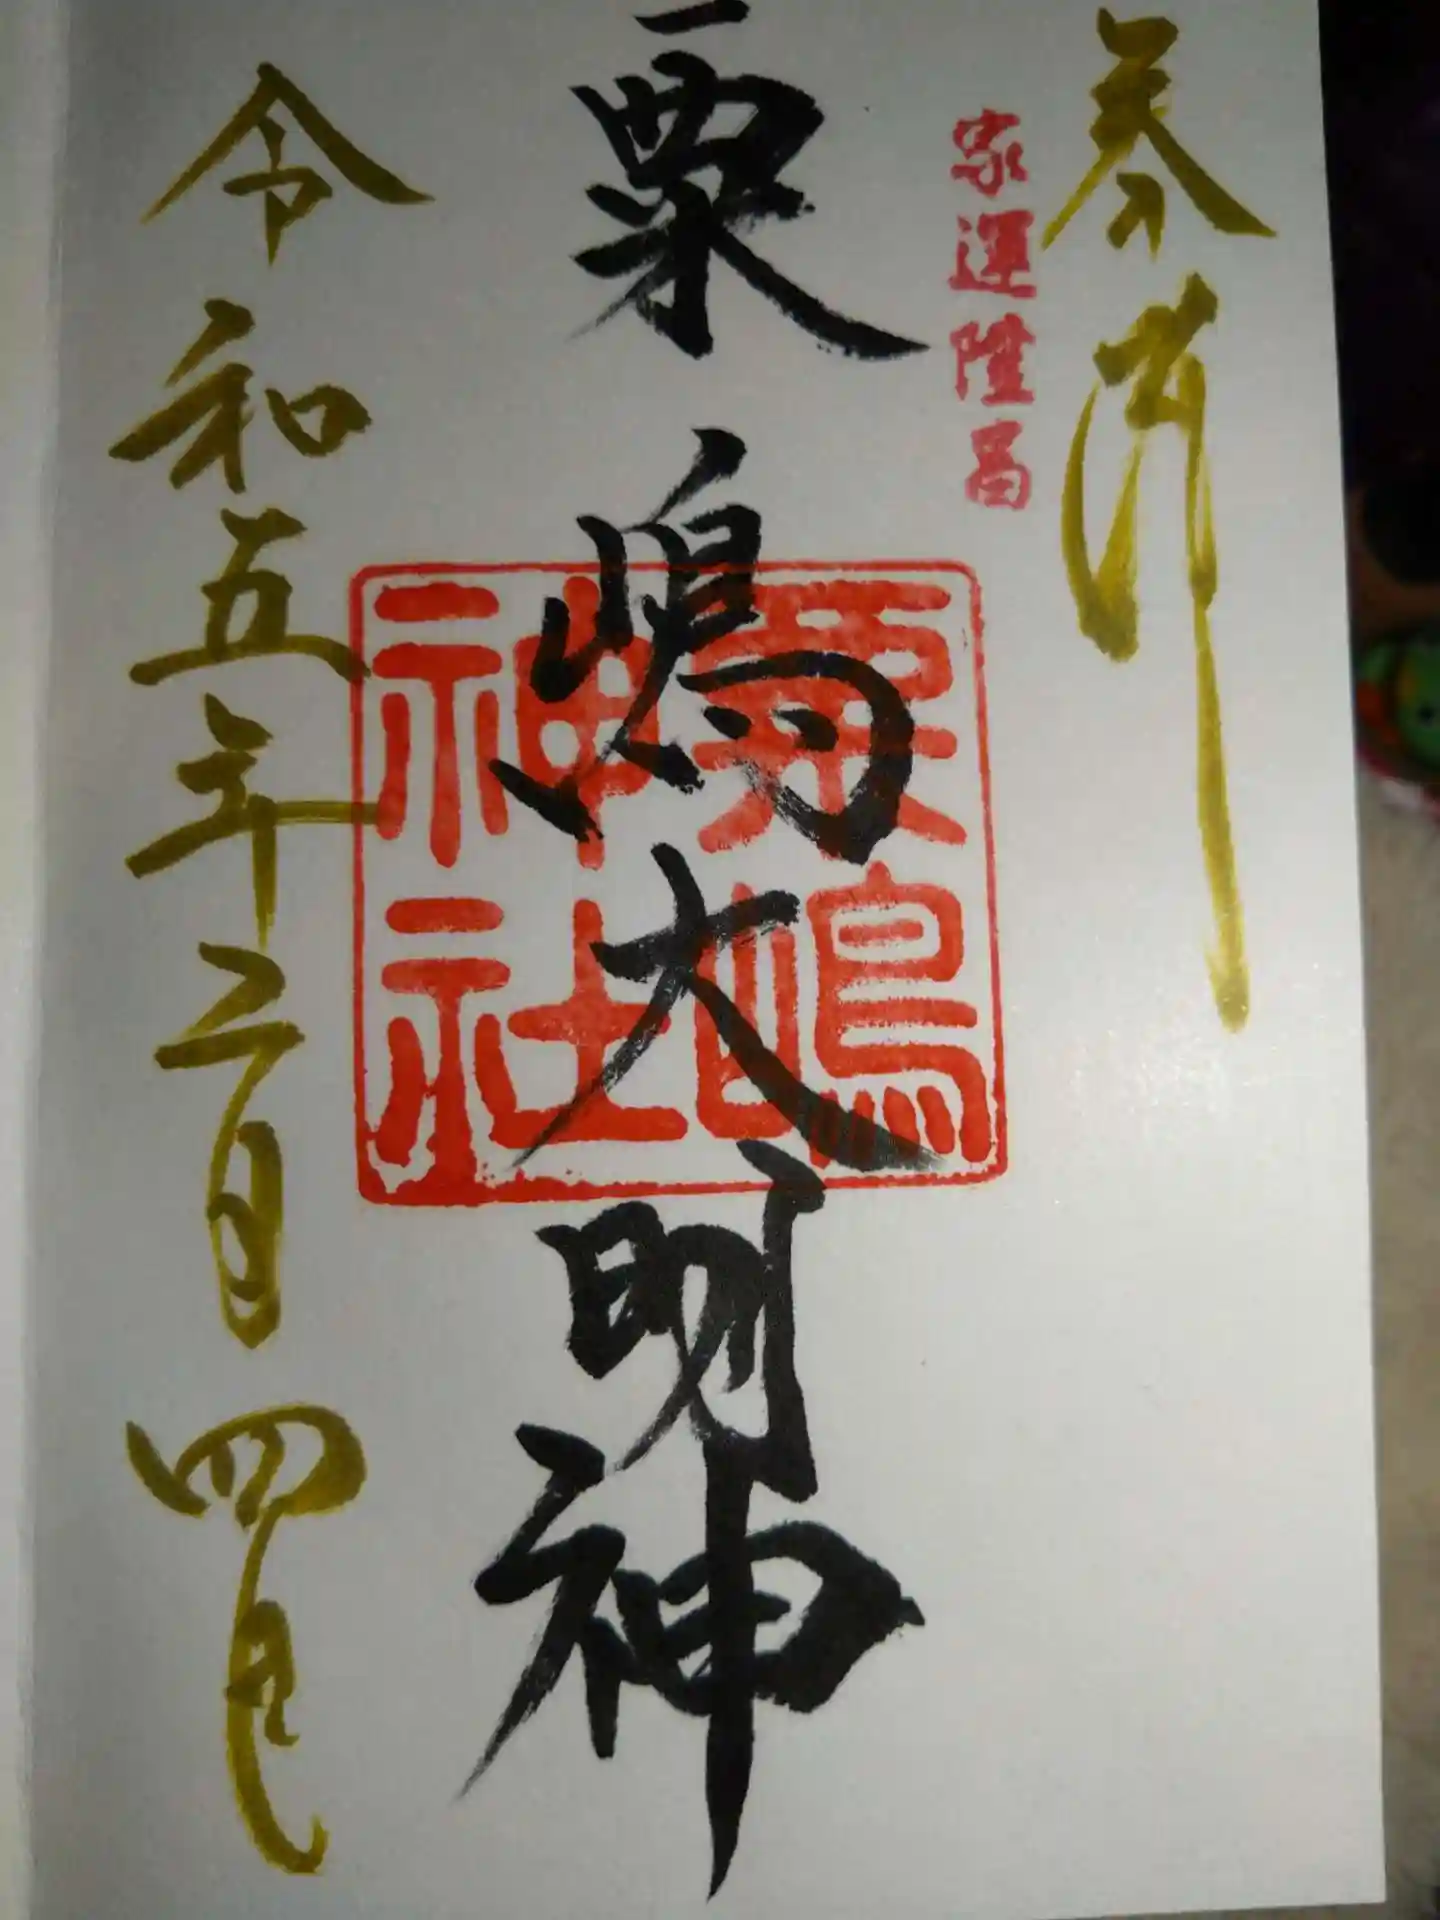 奉拝
家運隆昌
粟嶋大明神
粟嶋神社
令和五年二月四日